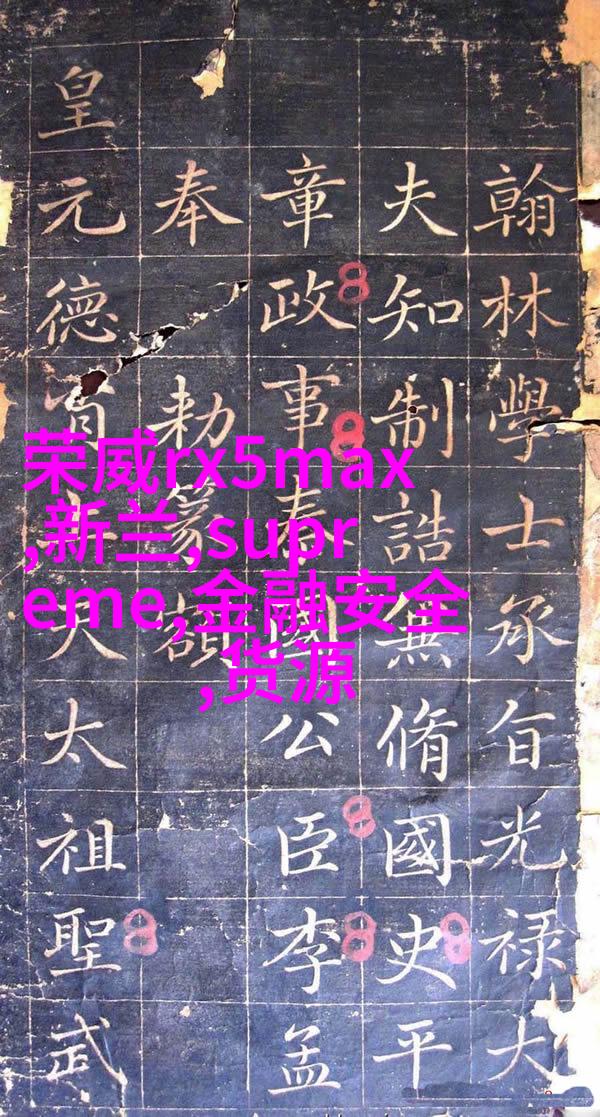 翰林學士承旨光禄大
夫知制誥無脩國史平
章政事秦國公臣李孟
奉勑篆額
皇元德大太祖聖武
荣威rx5max
,新兰,supr
eme,金融安全
,货源